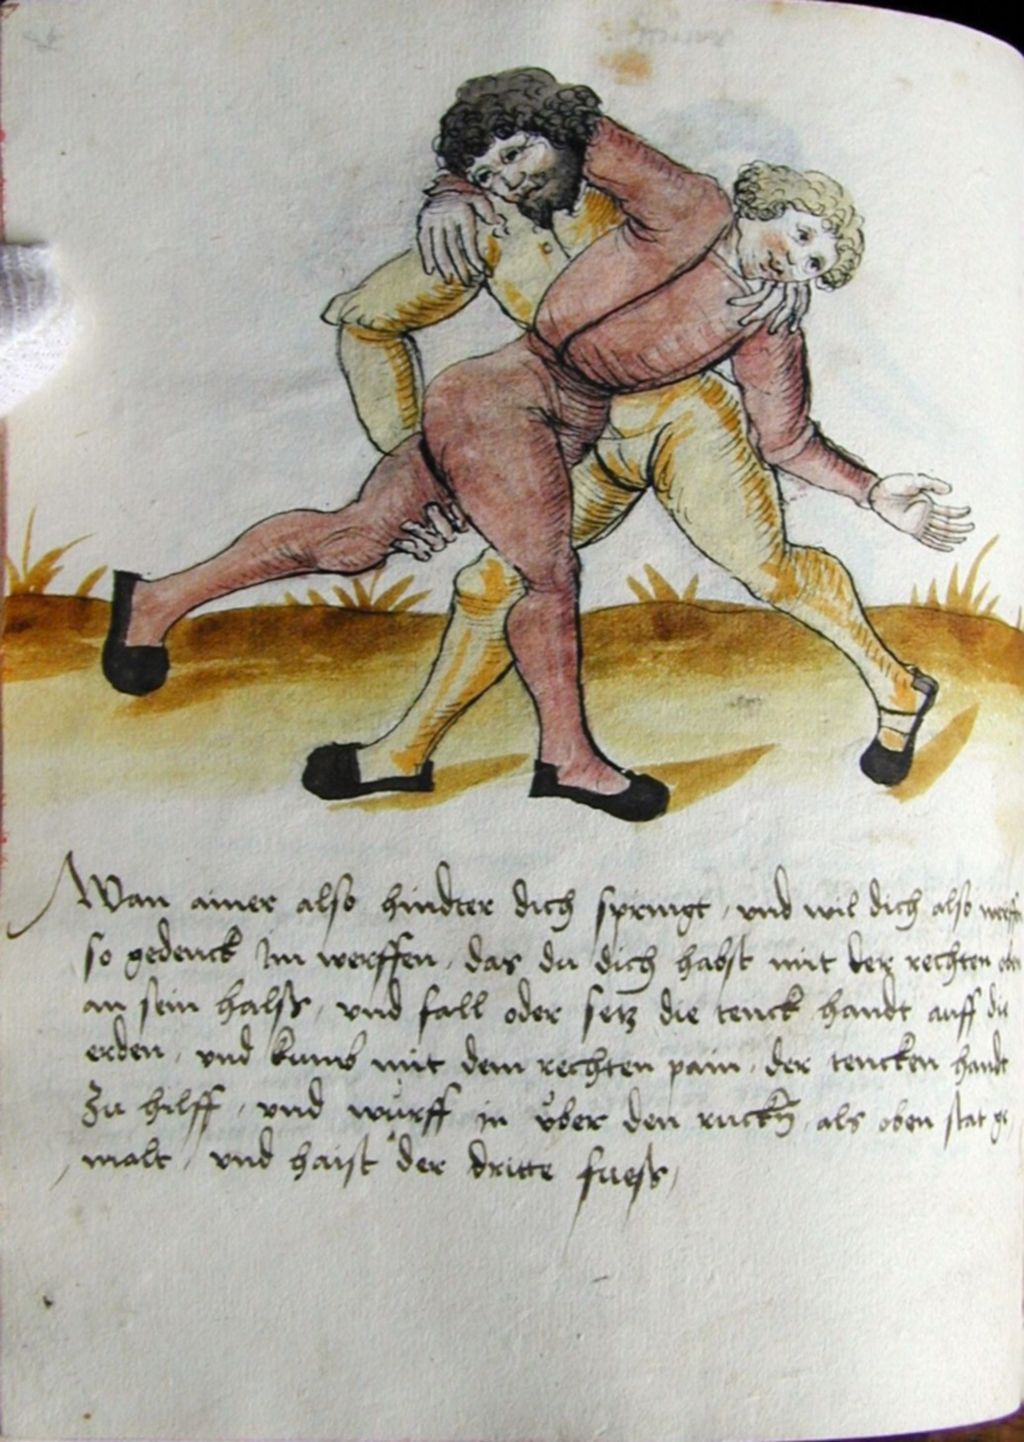 Wan ainer also hindter dich springt, und wil dich also werffn
so gedenck im werffen, das du dich habst mit der rechten oben
an sein halss, und fall oder setz die tenck handt auff die
erden, und kumb mit dem rechten pain, der tencken handt
zu hilff, und würff in über den ruckn, als oben stat ge
malt, und haist der dritte fuess,